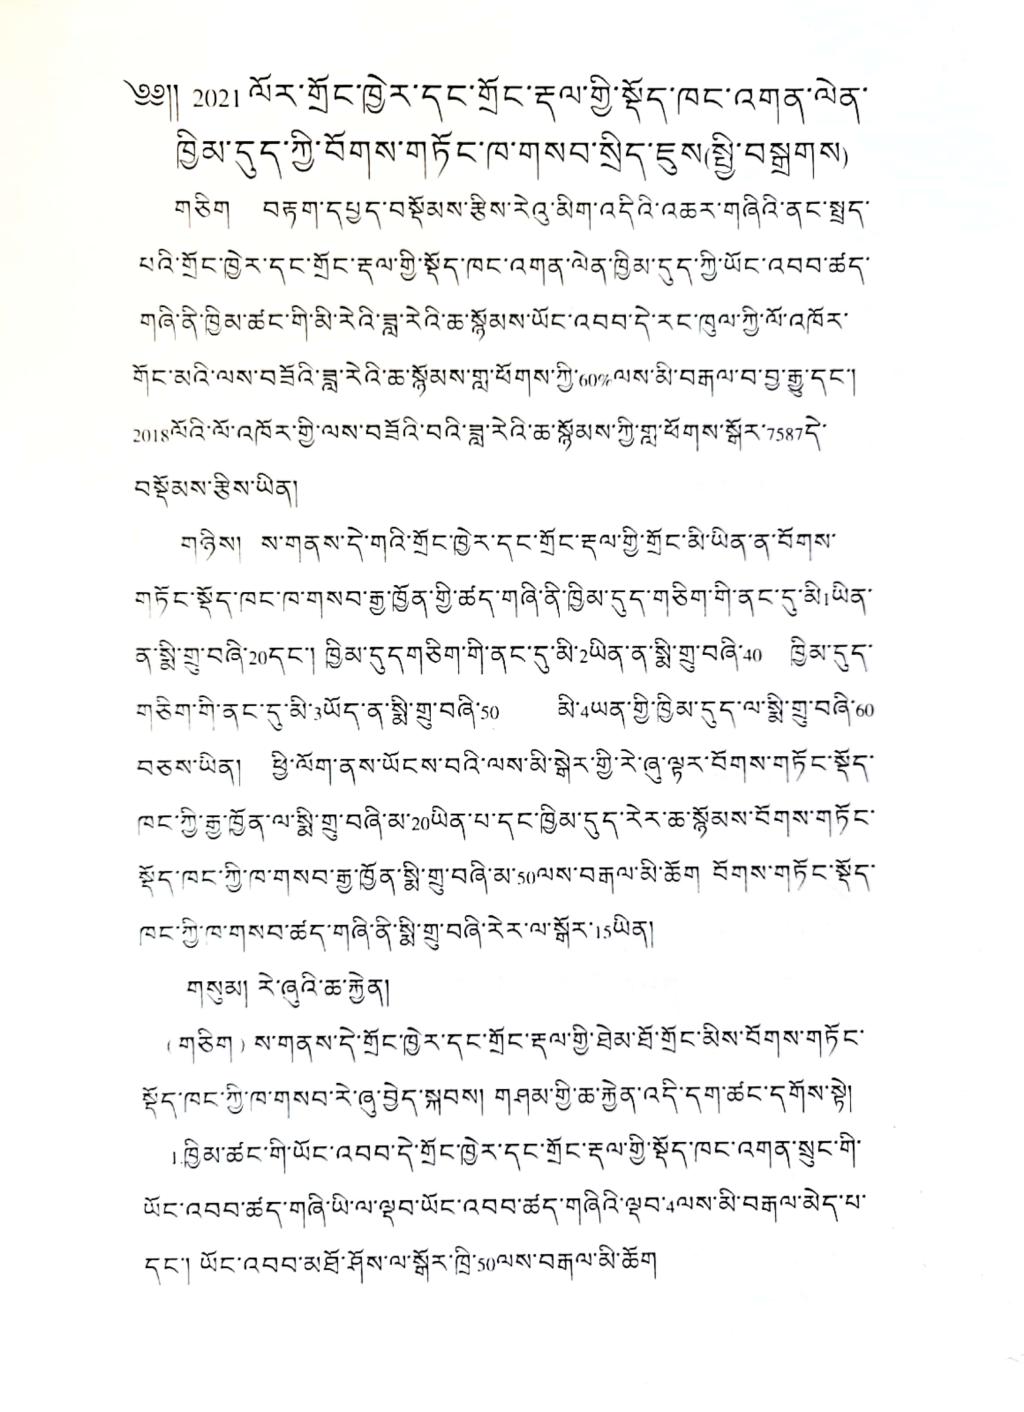 ༄༅།། 2021 ལོར་གྲོང་ཁྱེར་དང་གྲོང་རྡལ་གྱི་སྡོད་ཁང་འགན་ལེན་
ཁྱིམ་དུད་ཀྱི་བོགས་གཏོང་ཁ་གསབ་སྲིད་ཇུས(སྤྱི་བསྒྲགས)
གཅིག བརྟག་དཔྱད་བསྡོམས་རྩིས་རེའུ་མིག་འདིའི་འཆར་གཞིའི་ནང་སྤྲད་
པའི་གྲོང་ཁྱེར་དང་གྲོང་རྡལ་གྱི་སྡོད་ཁང་འགན་ལེན་ཁྱིམ་དུད་ཀྱི་ཡོང་འབབ་ཚད་
གཞི་ནི་ཁྱིམ་ཚང་གི་མི་རེའི་ཟླ་རེའི་ཆ་སྙོམས་ཡོང་འབབ་དེ་རང་ཁུལ་ཀྱི་ལོ་འཁོར་
གོང་མའི་ལས་བཟོའི་ཟླ་རེའི་ཆ་སྙོམས་གླ་ཕོགས་ཀྱི་60%ལས་མི་བརྒལ་བ་བྱ་རྒྱུ་དང་།
2018ལོའི་ལོ་འཁོར་གྱི་ལས་བཟོའི་བའི་ཟླ་རེའི་ཆ་སྙོམས་ཀྱི་གླ་ཕོགས་སྒོར་7587དེ་
བསྡོམས་རྩིས་ཡིན།
གཉིས། ས་གནས་དེ་གའི་གྲོང་ཁྱེར་དང་གྲོང་རྡལ་གྱི་གྲོང་མི་ཡིན་ན་བོགས་
གཏོང་སྡོད་ཁང་ཁ་གསབ་རྒྱ་ཁྱོན་གྱི་ཚད་གཞི་ནི་ཁྱིམ་དུད་གཅིག་གི་ནང་དུ་མི1ཡིན་
ན་སྨི་གྲུ་བཞི་20དང་། ཁྱིམ་དུདགཅིག་གི་ནང་དུ་མི་2ཡིན་ན་སྨི་གྲུ་བཞི་40 ཁྱིམ་དུད་
གཅིག་གི་ནང་དུ་མི་3ཡོད་ན་སྨི་གྲུ་བཞི་50 མི་4ཡན་གྱི་ཁྱིམ་དུད་ལ་སྨི་གྲུ་བཞི་60
བཅས་ཡིན། ཕྱི་ལོག་ནས་ཡོངས་བའི་ལས་མི་སྒེར་གྱི་རེ་ཞུ་ལྟར་བོགས་གཏོང་སྡོད་
ཁང་ཀྱི་རྒྱ་ཁྱོན་ལ་སྨི་གྲུ་བཞི་མ་20ཡིན་པ་དང་ཁྱིམ་དུད་རེར་ཆ་སྙོམས་བོགས་གཏོང་
སྡོད་ཁང་ཀྱི་ཁ་གསབ་རྒྱ་ཁྱོན་སྨི་གྲུ་བཞི་མ་50ལས་བརྒལ་མི་ཆོག བོགས་གཏོང་སྡོད་
ཁང་ཀྱི་ཁ་གསབ་ཚད་གཞི་ནི་སྨི་གྲུ་བཞི་རེར་ལ་སྒོར་15ཡིན།
གསུམ། རེ་ཞུའི་ཆ་རྐྱེན།
(གཅིག) ས་གནས་དེ་གྲོང་ཁྱེར་དང་གྲོང་རྡལ་གྱི་ཐེམ་ཐོ་གྲོང་མིས་བོགས་གཏོང་
སྡོད་ཁང་ཀྱི་ཁ་གསབ་རེ་ཞུ་བྱེད་སྐབས། གཤམ་གྱི་ཆ་རྐྱེན་འདི་དག་ཚང་དགོས་སྟེ།
1.ཁྱིམ་ཚང་གི་ཡོང་འབབ་དེ་གྲོང་ཁྱེར་དང་གྲོང་རྡལ་གྱི་སྡོད་ཁང་འགན་སྲུང་གི་
ཡོང་འབབ་ཚད་གཞི་ཡི་ལ་ལྡབ་ཡོང་འབབ་ཚད་གཞིའི་ལྡབ་4ལས་མི་བརྒལ་མེད་པ་
དང་། ཡོང་འབབ་མཐོ་ཤོས་ལ་སྒོར་ཁྲི་50ལས་བརྒལ་མི་ཆོག